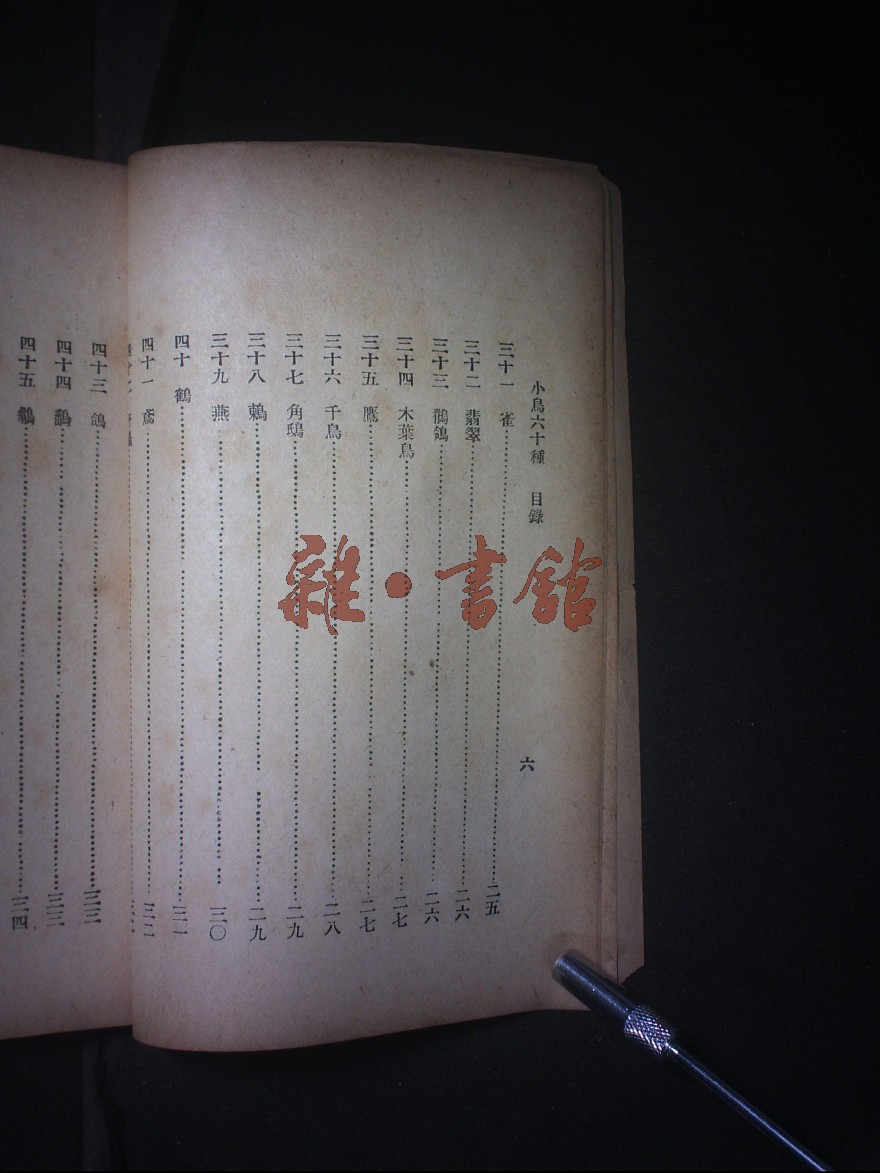 小鳥六十種 目錄 六
三十一 雀 二五
三十二 翡翠 二六
三十三 鶺鴒 二六
三十四 木葉鳥 二七
三十五 鷹 二七
三十六 千鳥 二八
三十七 角鴟 二九
三十八 二九
三十九 燕 三〇
四十 鶴 三一
四十一 鳶 三二
四十三 鴿 三三
四十四 三三
四十五 三四
雜·書館